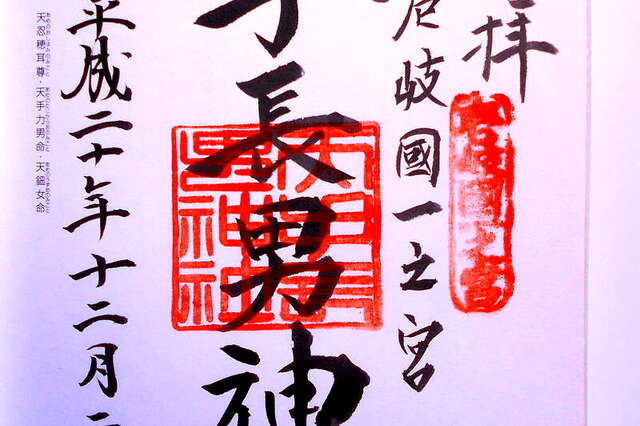 拝
壱岐國一之宮
手長男神
平成二十年十二月二
天忍穂耳尊・天手力男命・天鈿女命